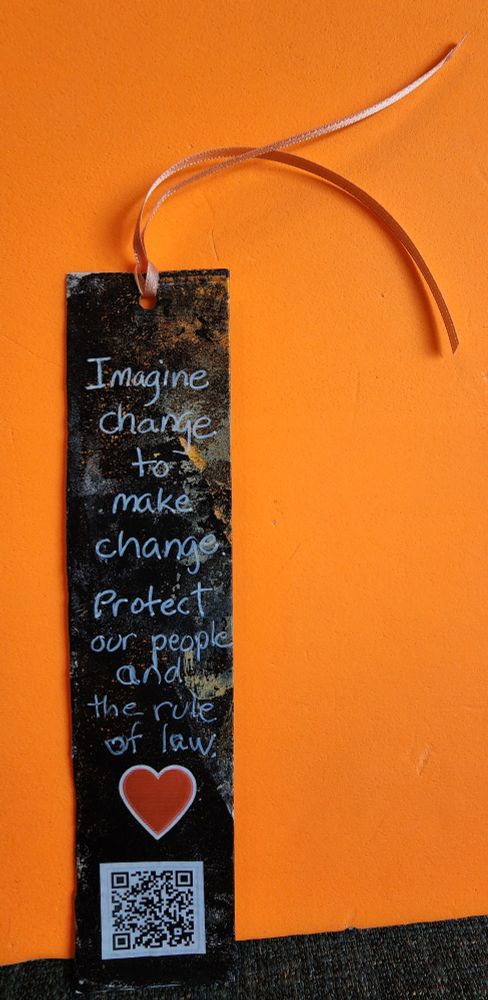 Imagine
change
to
make
change.
Protect
our people
and
the rule
of law.